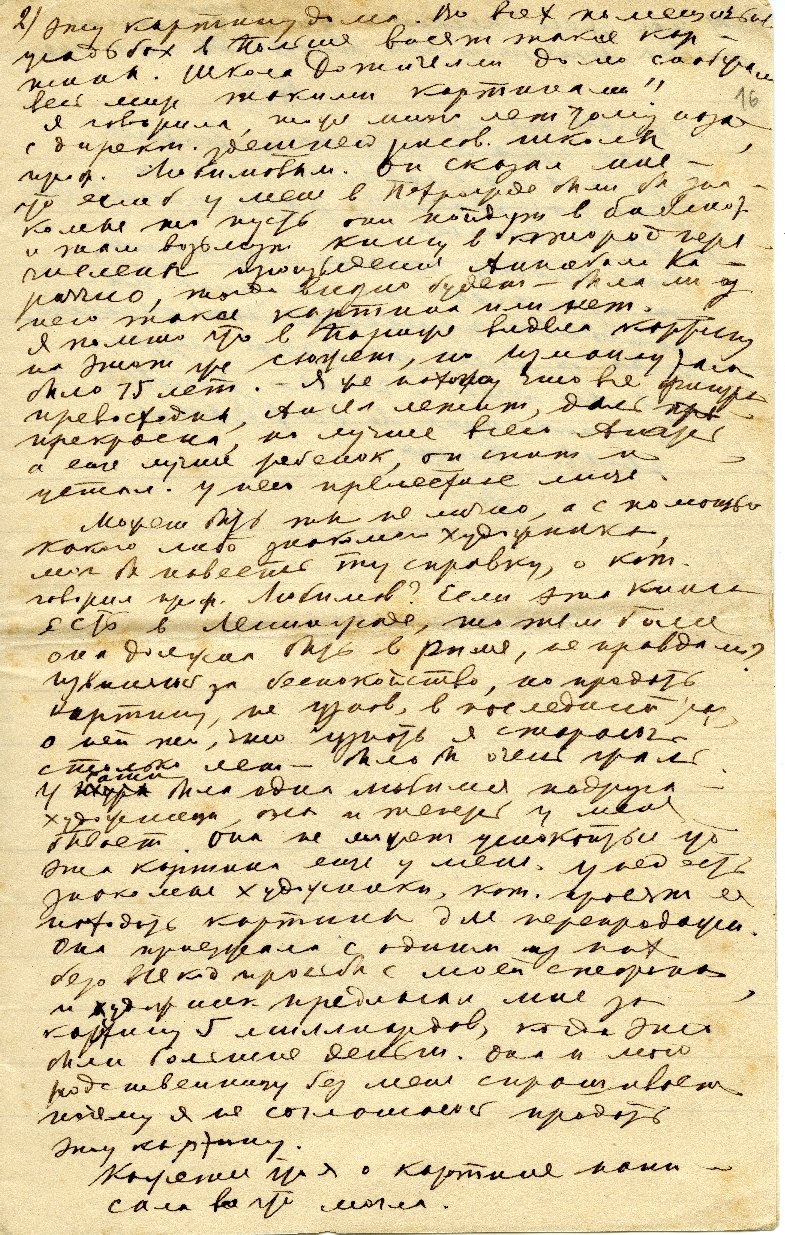 2) эту картину дома. Во всех помещичьих
усадьбах в Польше висят такие кар-
тины. Школа Дотичелли дома снабжала
весь мир такими картинами"
16
Я говорила, тоже много лет тому назад,
с директ. здешней рисов. школы
проф. Любимовым. Он сказал мне —
что если б у меня в Петрограде были бы зна-
комые то пусть они пойдут в библиот.
и там возьмут книгу в которой пере-
числены произведения Аннибала Ка-
раччио, тогда видно будет — была ли у
него такая картина или нет.
Я помню что в Париже видела картину
на этот же сюжет, но Измаилу там
было 15 лет. — Я же нахожу что все фигуры
превосходны, Ангел летит, даль
прекрасна, но лучше всего Агарь,
а еще лучше ребенок, он спит и
устал. У него прелестное лицо.
Может быть ты не лично, а с помощью
какого либо знакомого художника,
мог бы навести ту справку, о кот.
говорил проф. Любимов? Если эта книга
есть в Ленинграде, то тем более
она должна быть в Риме, не правда ли?
Извиняюсь за беспокойство, но продать
картину, не узнав, в последний раз,
о ней то, что узнать я старалась
столько лет — было бы очень жаль.
У Кати была одна любимая подруга —
художница, она и теперь у меня
бывает. Она не может успокоиться что
эта картина еще у меня. У неё есть
знакомые художники, кот. просят её
находить картины для перепродажи.
Она приезжала с одним из них
безо всякой просьбы с моей стороны,
и художник предлагал мне за
картину 5 миллиардов, когда это
были большие деньги. Она и мою
родственницу без меня спрашивает
почему я не соглашаюсь продать
эту картину.
Кажется что я о картине напи-
сала все что могла.